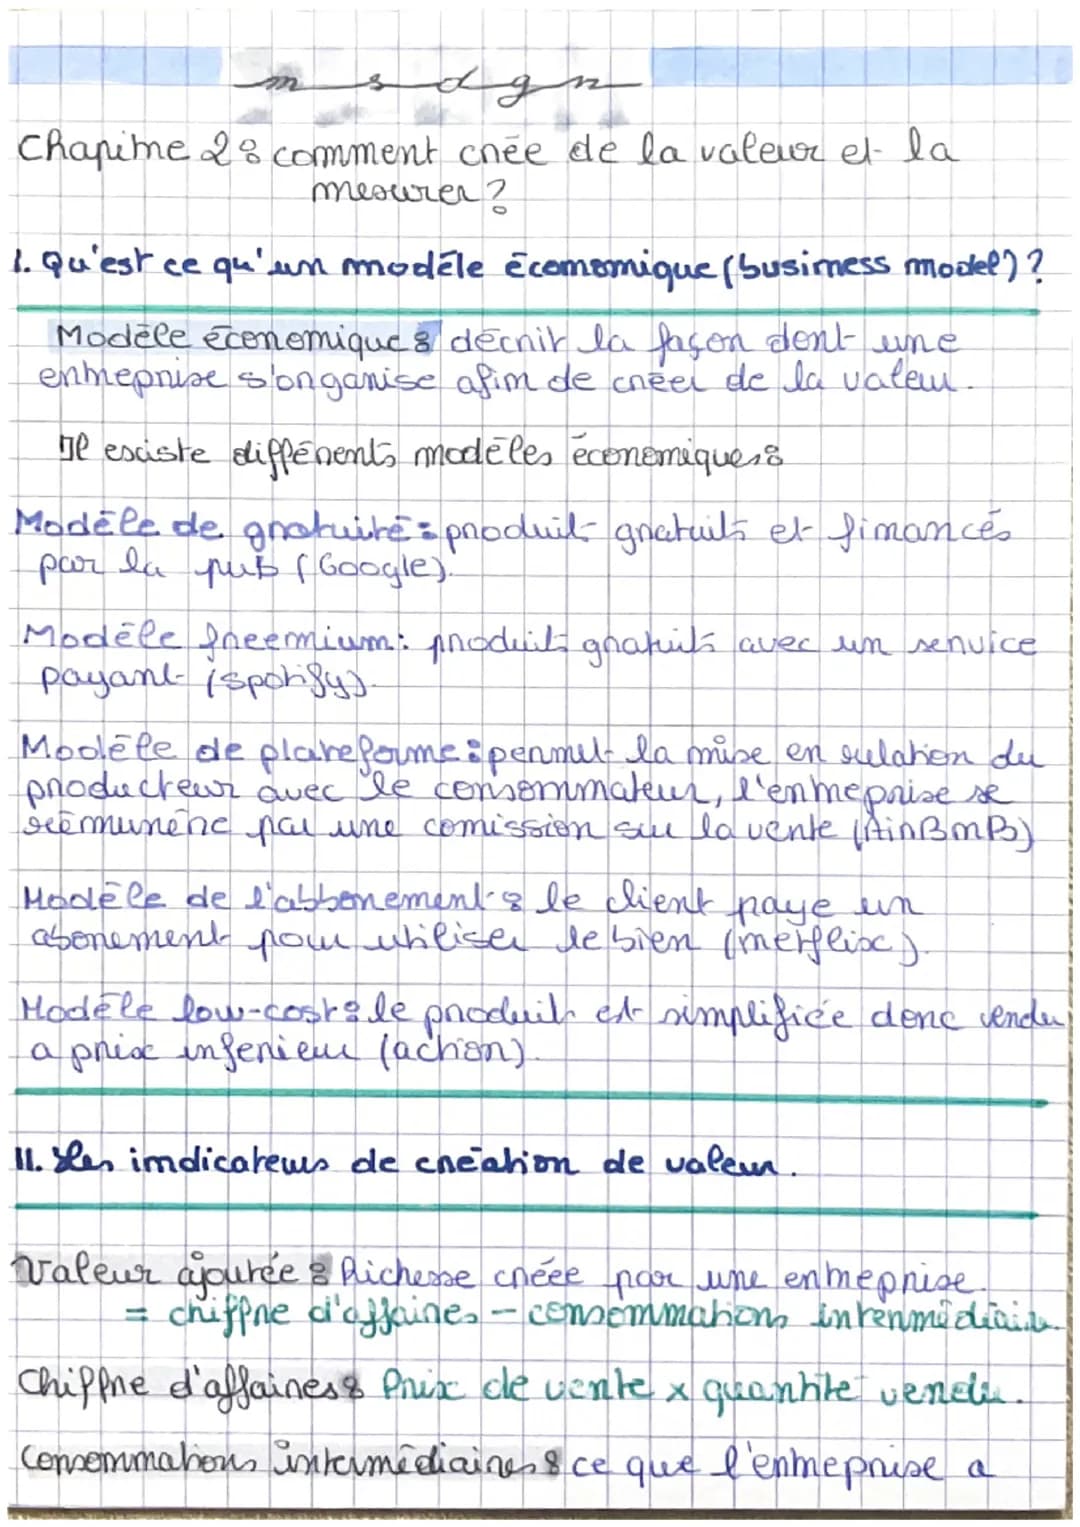 msdgn
Chapitre 2: comment crée de la valeur et la
mesurer?
I. Qu'est ce qu'un modèle économique (business model)?
Modèle économique: décrit la façon dont une
entreprise s'organise afin de créer de la valeur.
Il existe différents modèles économiques:
Modèle de gratuité: produit gratuits et financés
par la pub (Google).
Modèle freemium: produits gratuits avec un service
payant (spotify).
Modèle de plateforme: permet la mise en relation du
producteur avec le consommateur, l'entreprise se
rémunère par une comission sur la vente (AirBmB)
Modèle de l'abbonement: le client paye un
abonement pour utiliser le bien (netflix).
Modèle low-cost: le produit est simplifiée donc vendu
a prix inferieur (action).
II. Les indicateurs de création de valeur.
Valeur ajoutée: Richesse créée par une entreprise.
= chiffre d'affaires - consommations intermédiaire.
Chiffre d'affaires: Prix de vente x quantité vendu.
Consommations intermédiaires: ce que l'entreprise a